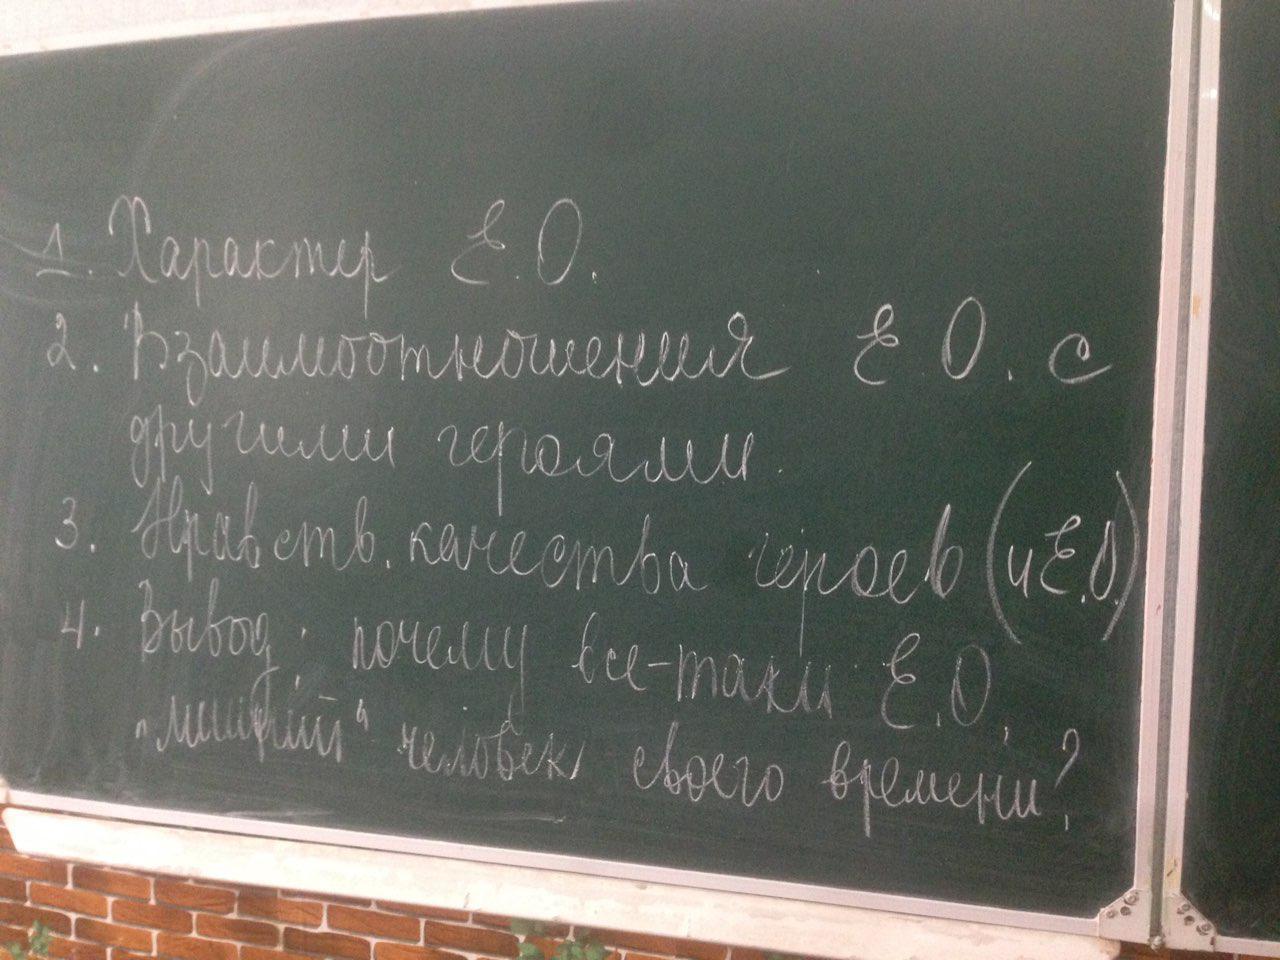 1. Характер Е.О.
2. Взаимоотношения Е.О. с
другими героями.
3. Нравств. качества героев (и Е.О.)
4. Вывод: почему все-таки Е.О.
"лишний" человек своего времени?